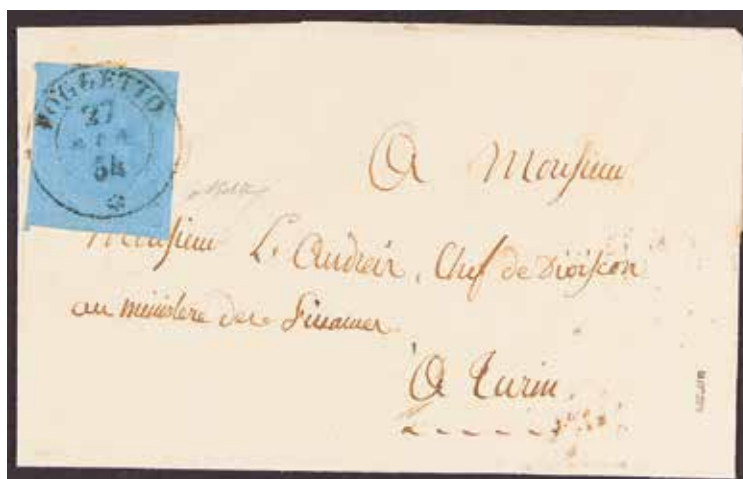 POGGETTO
27
APR
54
A Monsieur
Monsieur L. Audeir, Chef de Division
au ministere des Finances
A Turin.